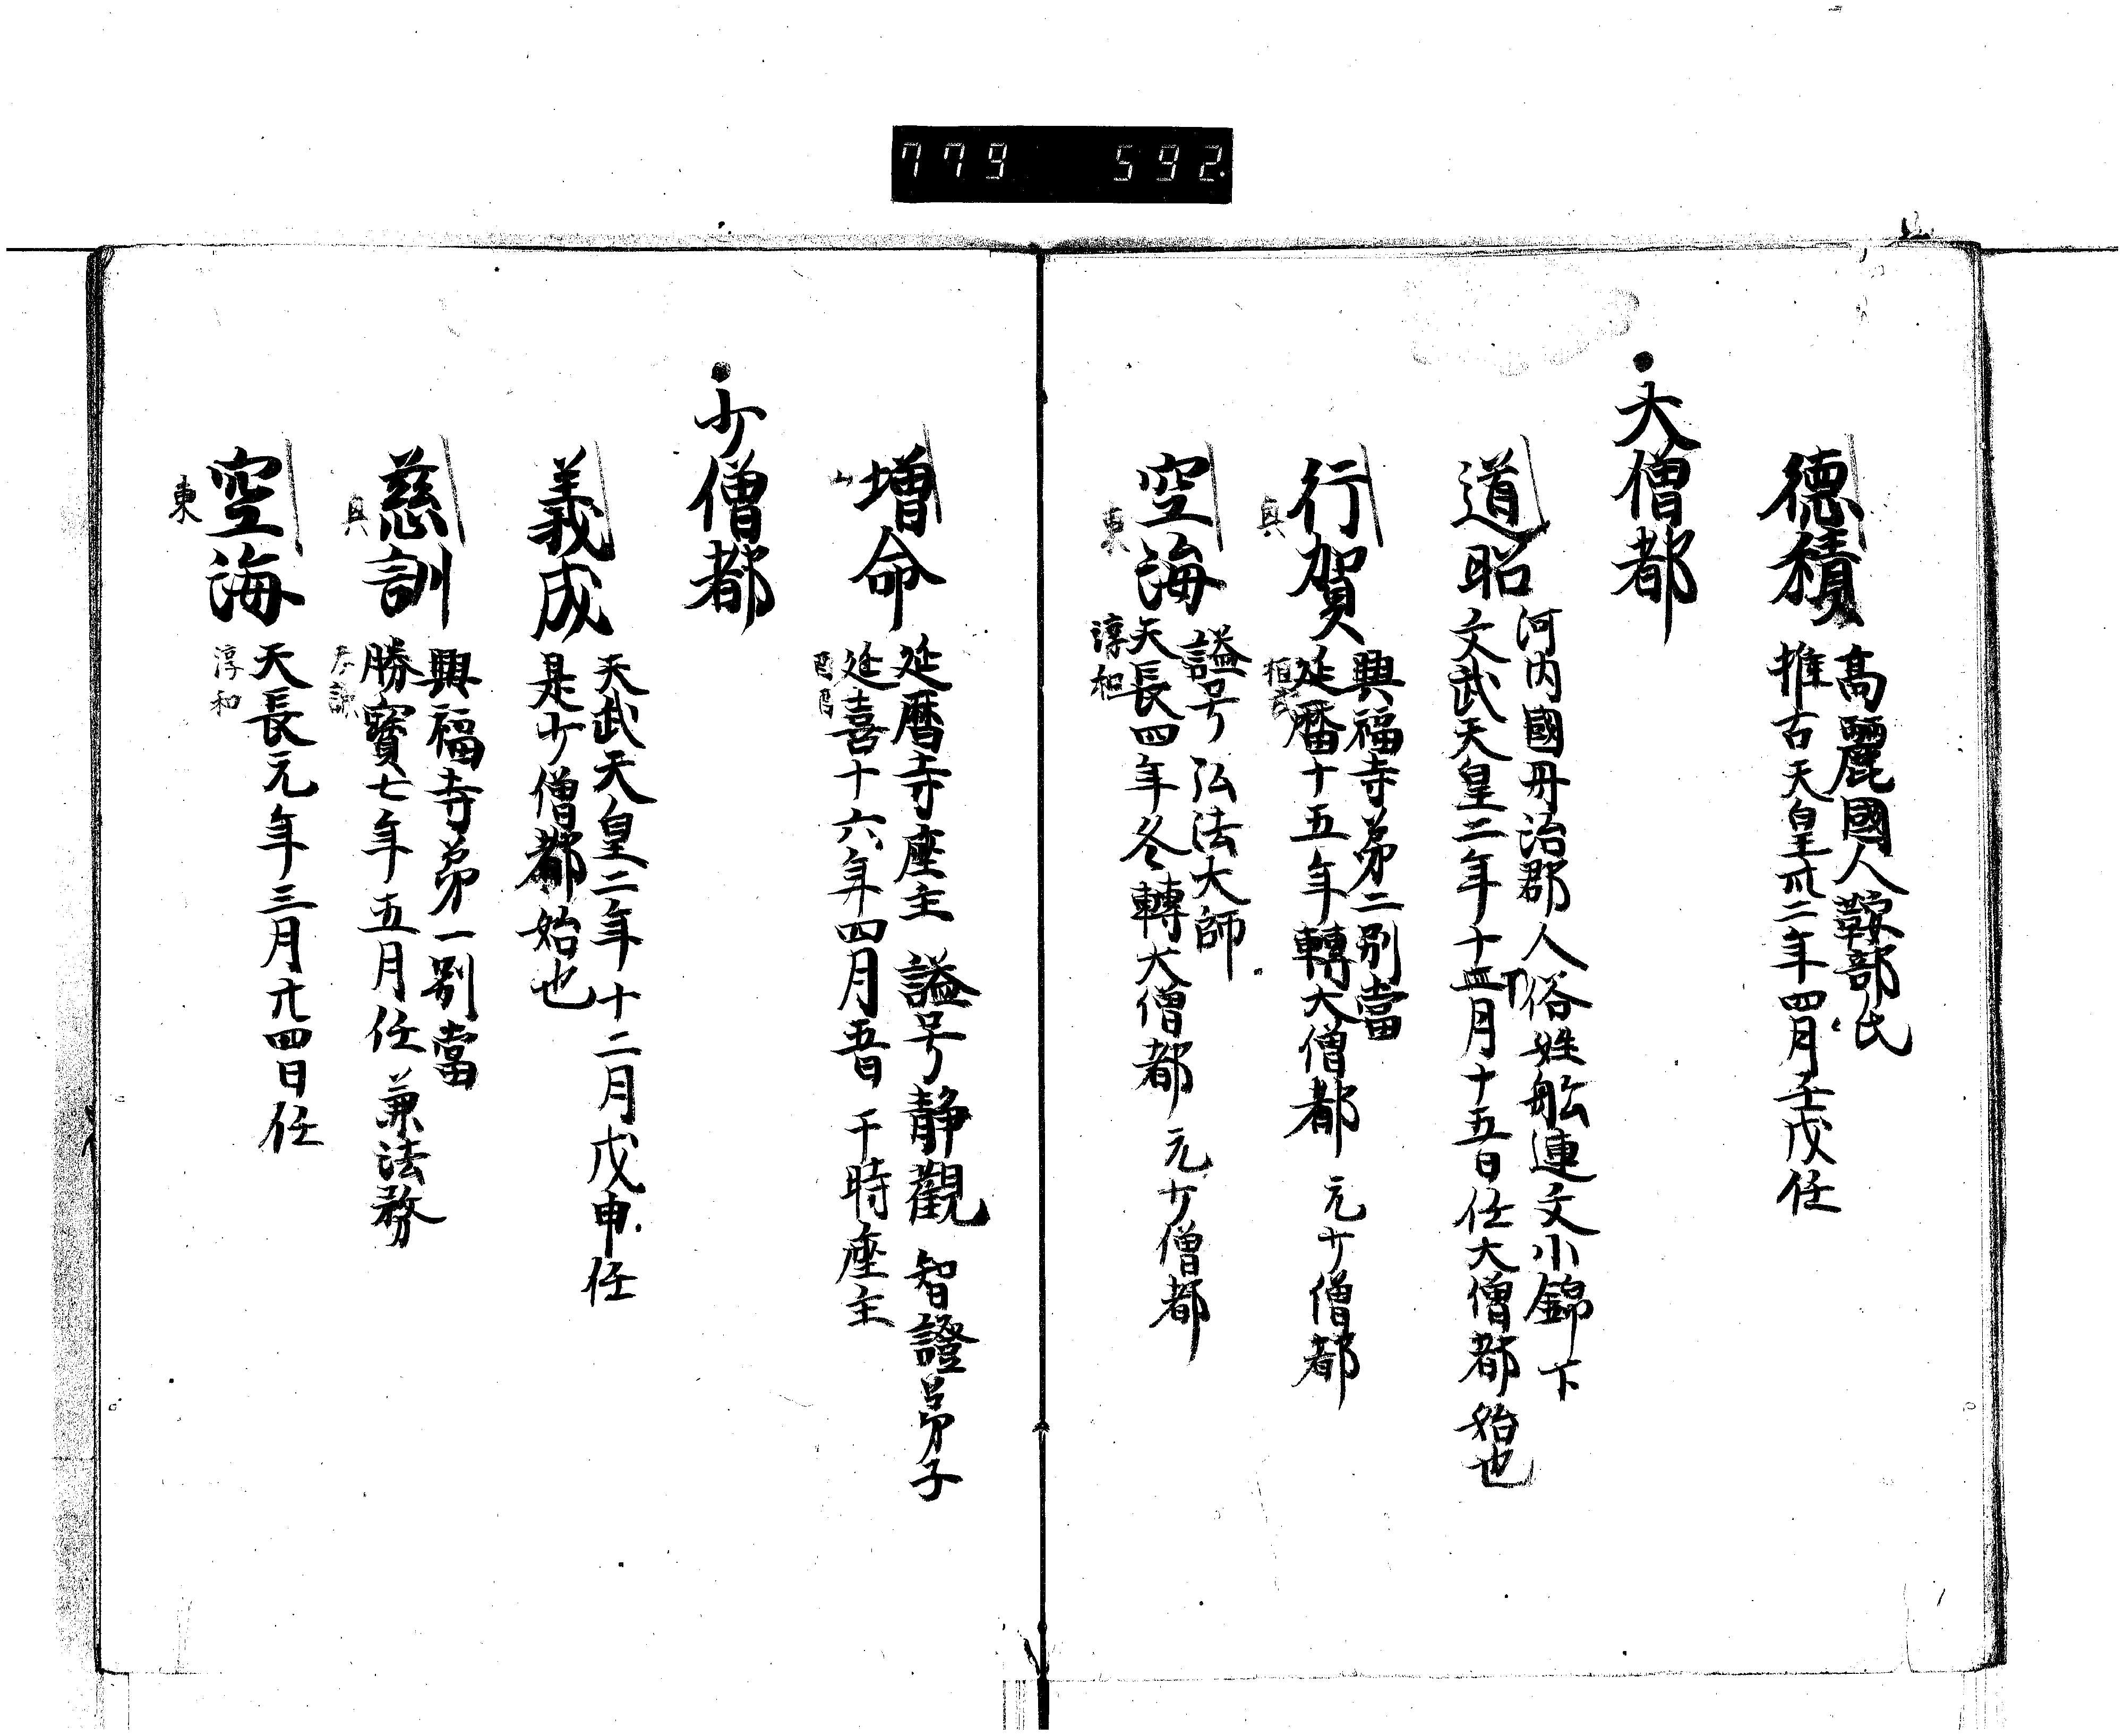 779 592
德積
高麗國人鞍部氏
推古天皇卅二年四月壬戌任
大僧都
道昭
河内國丹治郡人俗姓舩連文小錦下
文武天皇二年十一月十五日任大僧都始也
行賀
興
興福寺苐二別當
延曆十五年轉大僧都 元少僧都
桓武
空海
東
謚号弘法大師
天長四年冬轉大僧都 元少僧都
淳和
増命
山
延曆寺座主 謚号靜觀 智證弟子
延喜十六年四月五日 于時座主
醍醐
少僧都
義成
天武天皇二年十二月戊申任
是少僧都始也
慈訓
興
興福寺苐一別當
勝寳七年五月任 兼法務
孝謙
空海
東
天長元年三月廿四日任
淳和